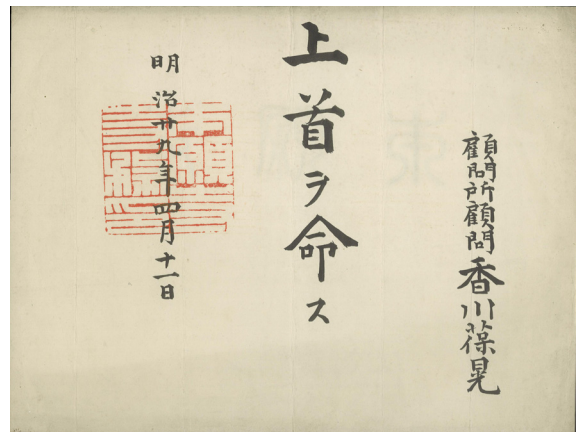 顧問所顧問香川葆晃
上首ヲ命ス
明治廿九年四月十一日